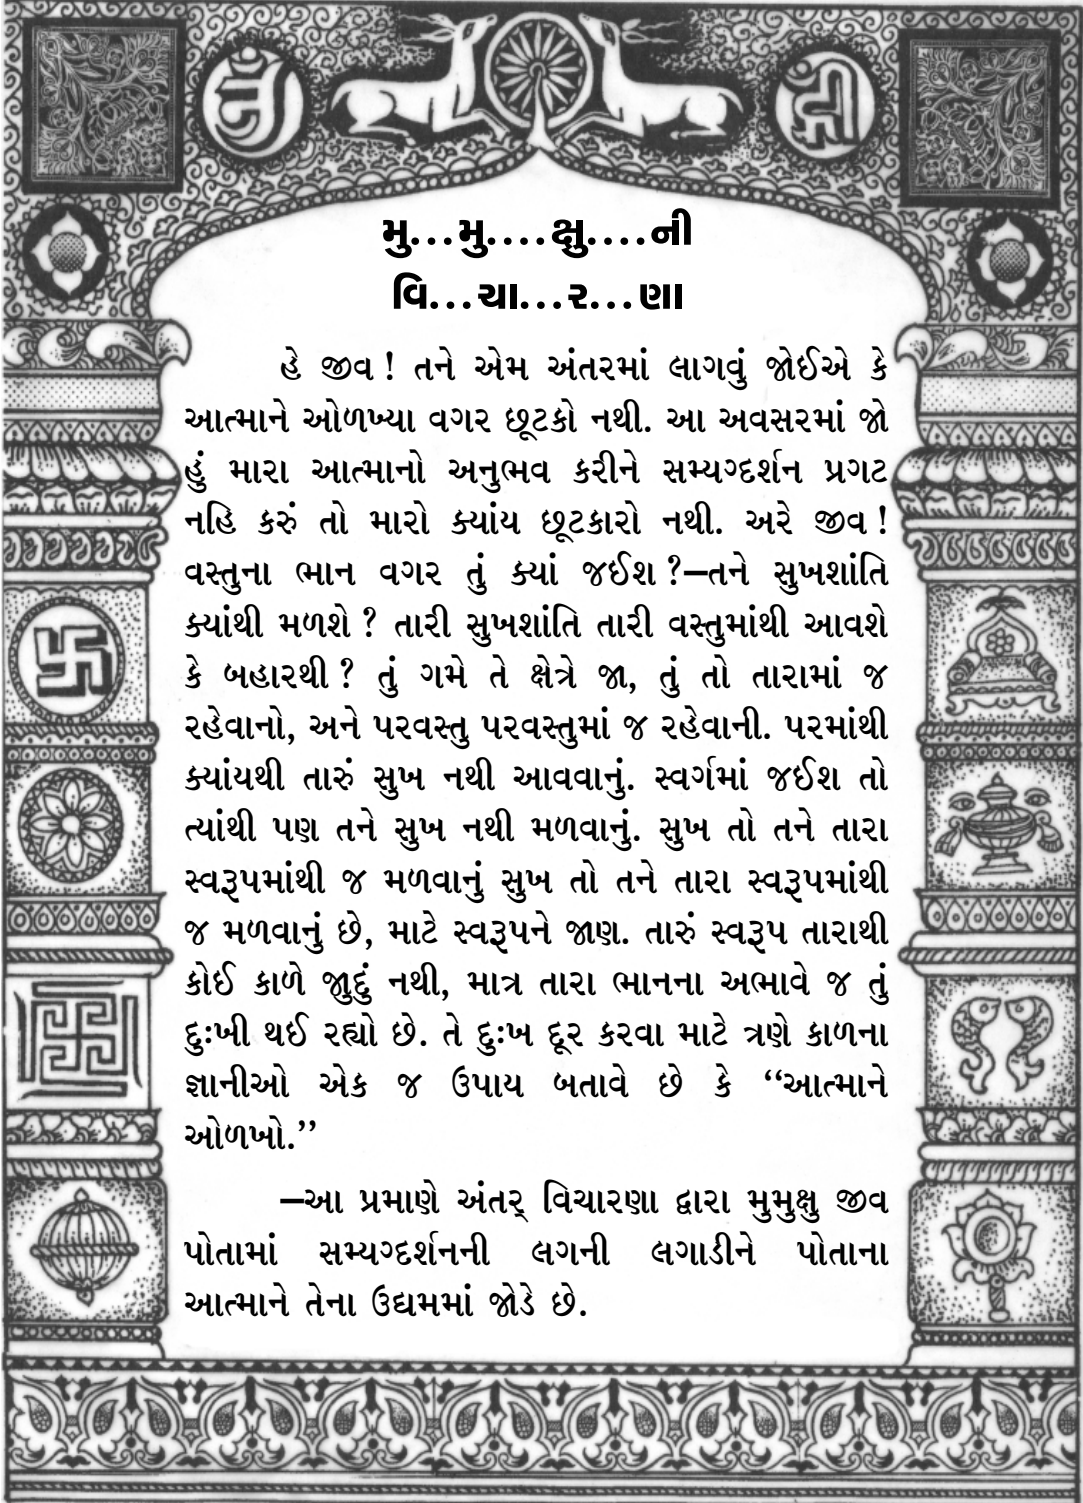 મુ...મુ....ક્ષુ....ની
વિ...ચા...ર...ણા
હે જીવ ! તને એમ અંતરમાં લાગવું જોઈએ કે
આત્માને ઓળખ્યા વગર છૂટકો નથી. આ અવસરમાં જો
હું મારા આત્માનો અનુભવ કરીને સમ્યગ્દર્શન પ્રગટ
નહિ કરું તો મારો ક્યાંય છૂટકારો નથી. અરે જીવ !
વસ્તુના ભાન વગર તું ક્યાં જઈશ ?–તને સુખશાંતિ
ક્યાંથી મળશે ? તારી સુખશાંતિ તારી વસ્તુમાંથી આવશે
કે બહારથી ? તું ગમે તે ક્ષેત્રે જા, તું તો તારામાં જ
રહેવાનો, અને પરવસ્તુ પરવસ્તુમાં જ રહેવાની. પરમાંથી
ક્યાંયથી તારું સુખ નથી આવવાનું. સ્વર્ગમાં જઈશ તો
ત્યાંથી પણ તને સુખ નથી મળવાનું. સુખ તો તને તારા
સ્વરૂપમાંથી જ મળવાનું સુખ તો તને તારા સ્વરૂપમાંથી
જ મળવાનું છે, માટે સ્વરૂપને જાણ. તારું સ્વરૂપ તારાથી
કોઈ કાળે જાુદું નથી, માત્ર તારા ભાનના અભાવે જ તું
દુઃખી થઈ રહ્યો છે. તે દુઃખ દૂર કરવા માટે ત્રણે કાળના
જ્ઞાનીઓ એક જ ઉપાય બતાવે છે કે ‘‘આત્માને
ઓળખો.’’
–આ પ્રમાણે અંતર્ વિચારણા દ્વારા મુમુક્ષુ જીવ
પોતામાં સમ્યગ્દર્શનની લગની લગાડીને પોતાના
આત્માને તેના ઉદ્યમમાં જોડે છે.